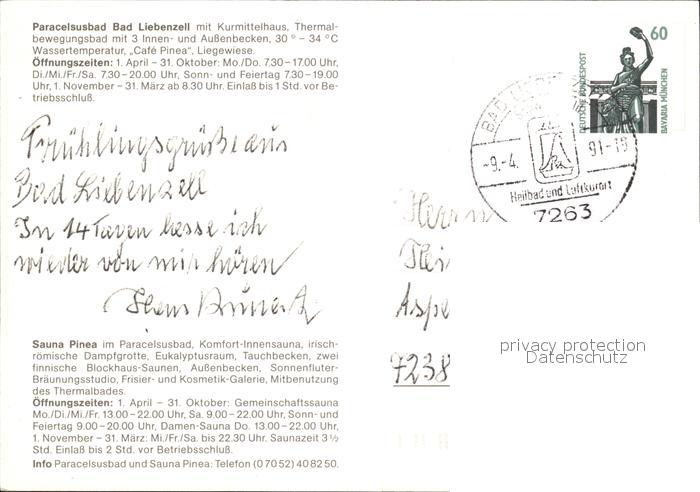 Paracelsusbad Bad Liebenzell mit Kurmittelhaus, Thermal-
bewegungsbad mit 3 Innen- und Außenbecken, 30° – 34°C
Wassertemperatur, „Café Pinea", Liegewiese.
Öffnungszeiten: 1. April – 31. Oktober: Mo./Do. 7.30–17.00 Uhr,
Di./Mi./Fr./Sa. 7.30–20.00 Uhr, Sonn- und Feiertag 7.30–19.00
Uhr, 1. November – 31. März ab 8.30 Uhr. Einlaß bis 1 Std. vor Be-
triebsschluß.
Frühlingsgrüße aus
Bad Liebenzell
In 14 Tagen lasse ich
wieder von mir hören
Sauna Pinea im Paracelsusbad, Komfort-Innensauna, irisch-
römische Dampfgrotte, Eukalyptusraum, Tauchbecken, zwei
finnische Blockhaus-Saunen, Außenbecken, Sonnenfluter-
Bräunungsstudio, Frisier- und Kosmetik-Galerie, Mitbenutzung
des Thermalbades.
Öffnungszeiten: 1. April – 31. Oktober: Gemeinschaftssauna
Mo./Di./Mi./Fr. 13.00–22.00 Uhr, Sa. 9.00–22.00 Uhr, Sonn- und
Feiertag 9.00–20.00 Uhr, Damen-Sauna Do. 13.00–22.00 Uhr,
1. November – 31. März: Mi./Fr./Sa. bis 22.30 Uhr. Saunazeit 3½
Std. Einlaß bis 2 Std. vor Betriebsschluß.
Info Paracelsusbad und Sauna Pinea: Telefon (07052) 408250.
60
DEUTSCHE BUNDESPOST
BAVARIA MÜNCHEN
BAD
-9.-4.
91-19
Heilbad und Luftkurort
7263
Herrn
Aspe
7238
privacy protection
Datenschutz